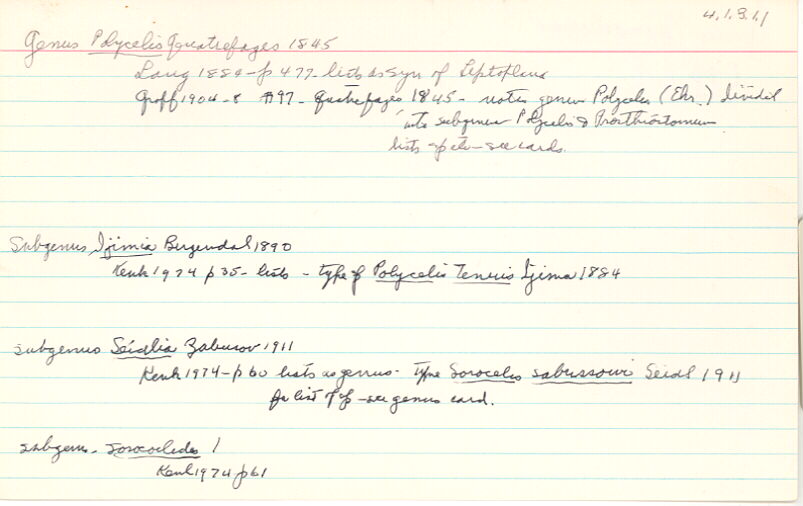 4.1.3.1.1
Genus Polycelis Quatrefages 1845
Lang 1884-p 477- lists as syn of Leptoplana
Graff 1904-8 A97- Quatrefages 1845- notes genus Polycelis (Ehr.) divided
into subgenus Polycelis & Prosthiostomum
lists sp etc - see cards.
Subgenus Ijimia Bergendal 1890
Kenk 1974 p35- lists - type of Polycelis Tenuis Ijima 1884
subgenus Seidlia Zabusov 1911
Kenk 1974-p60 lists as genus- Type Sorocelis sabussowi Seidl 1911
for list of sp -see genus card.
subgenus - Sorocelides
Kenk 1974 p61